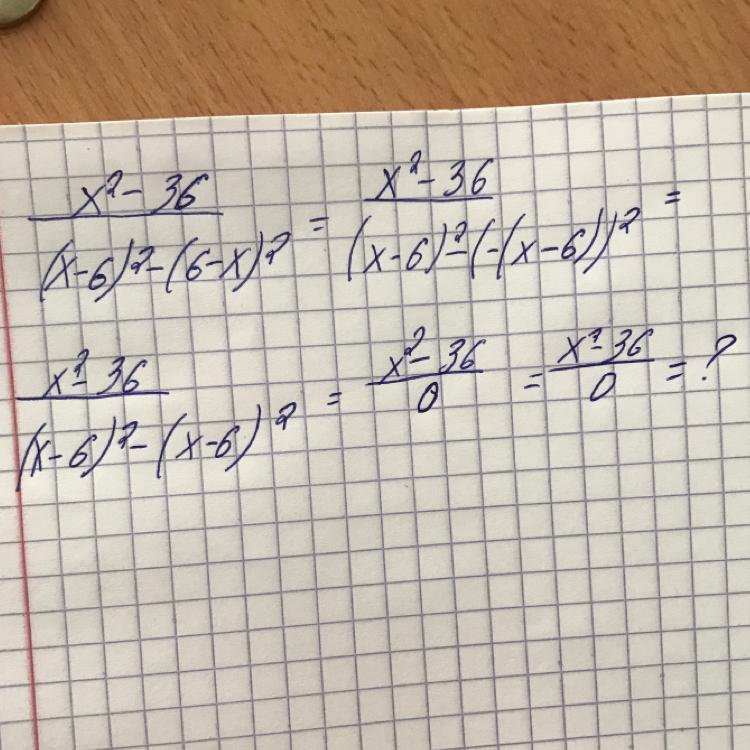 x² - 36 / (x-6)² - (6-x)² = x² - 36 / (x-6)² - (-(x-6))² =
x² - 36 / (x-6)² - (x-6)² = x² - 36 / 0 = x² - 36 / 0 = ?